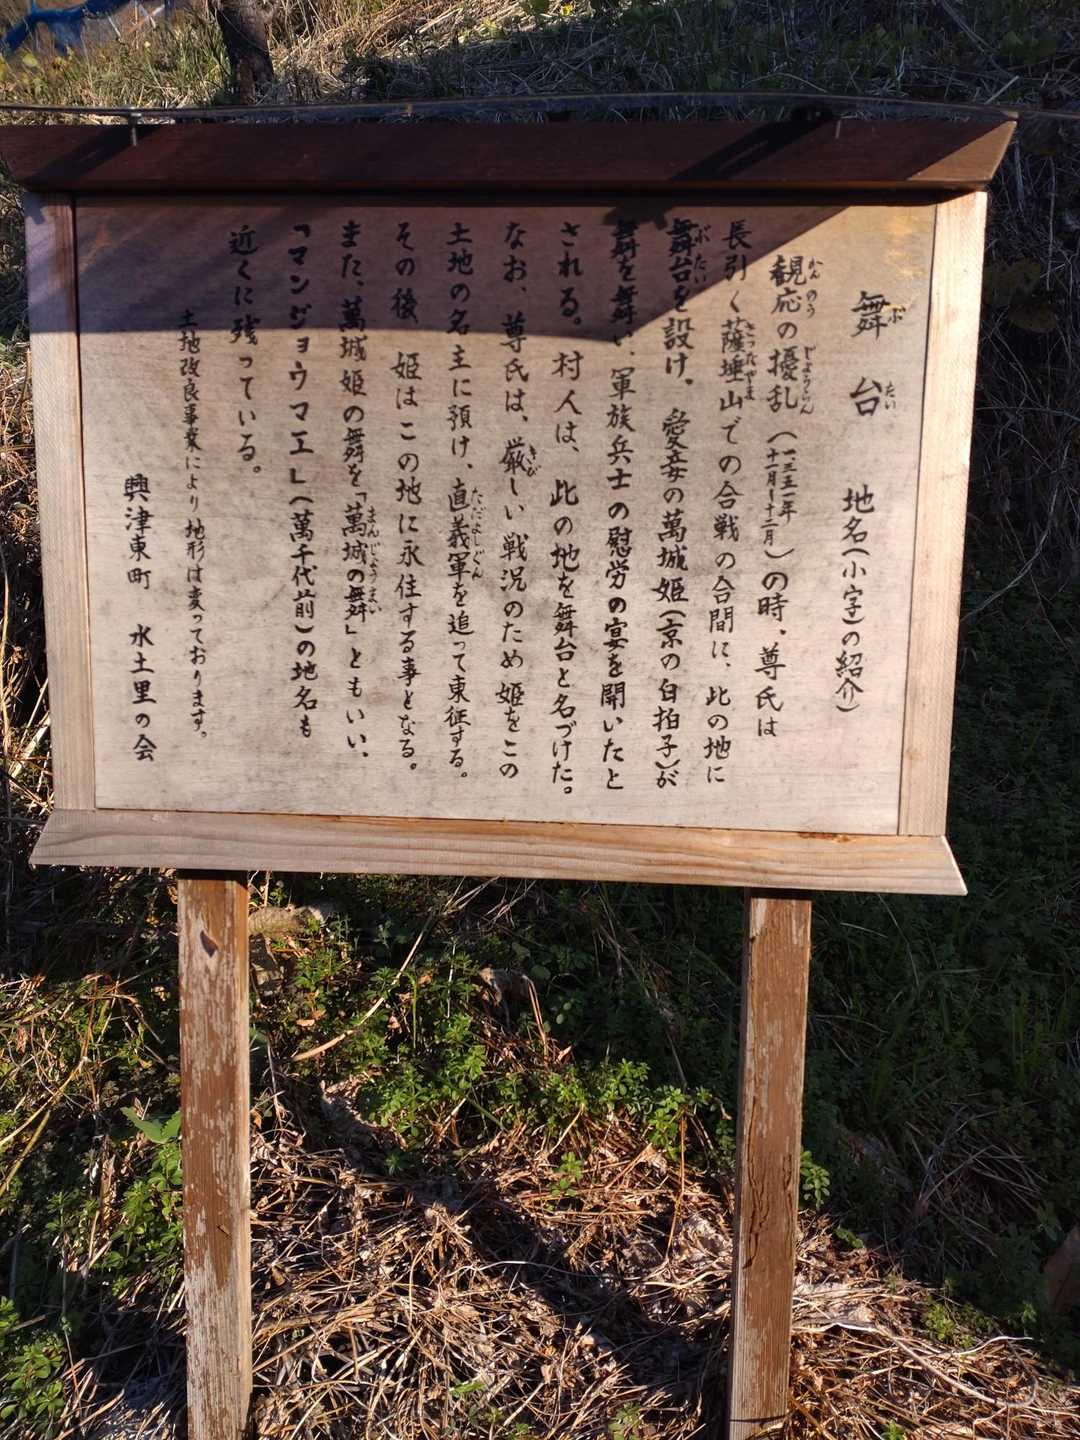 舞台 地名(小字)の紹介)
観応の擾乱(一三五一年十一月~十二月)の時、尊氏は
長引く薩埵山での合戦の合間に、此の地に
舞台を設け、愛妾の萬城姫(京の白拍子)が
舞を舞い、軍族兵士の慰労の宴を開いたと
される。村人は、此の地を舞台と名づけた。
なお、尊氏は、厳しい戦況のため姫をこの
土地の名主に預け、直義軍を追って東征する。
その後、姫はこの地に永住する事となる。
また、萬城姫の舞を「萬城の舞」ともいい、
「マンジョウマエ」(萬千代前)の地名も
近くに残っている。
土地改良事業により地形は変っております。
興津東町 水土里の会